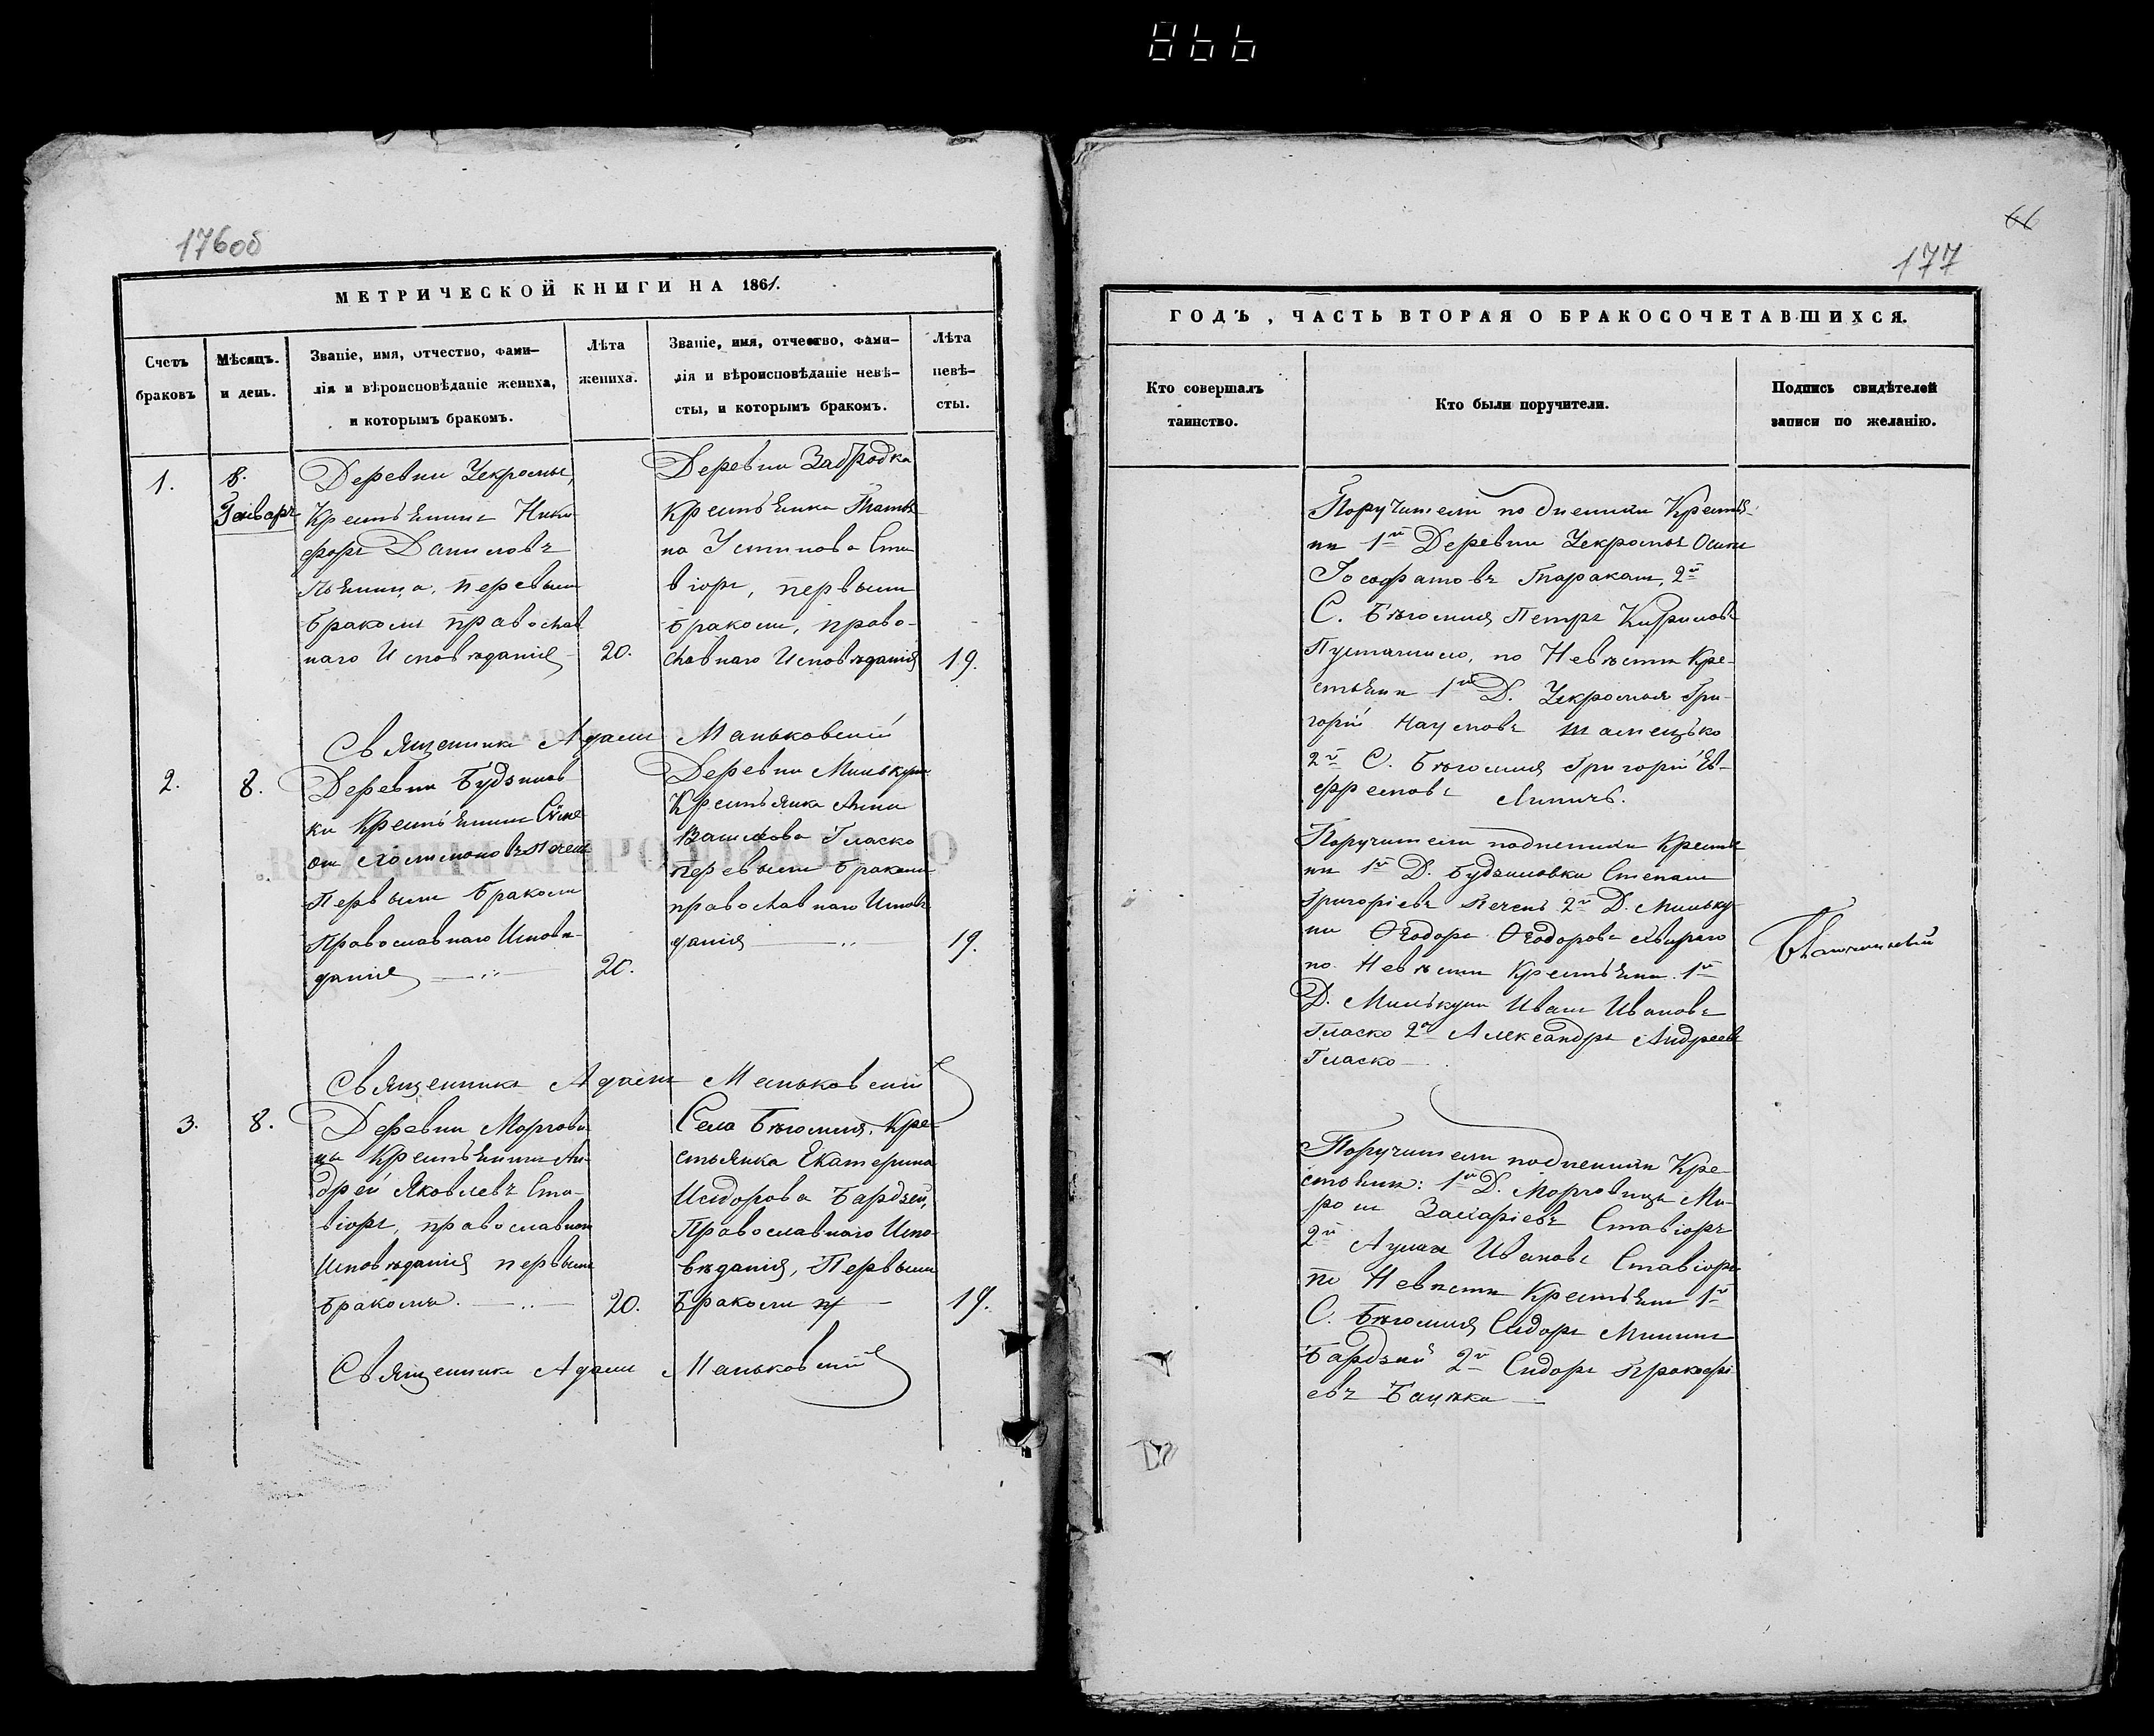 866
176об
МЕТРИЧЕСКОЙ КНИГИ НА 1861.
Счетъ
браковъ
Мѣсяцъ.
и день.
Званіе, имя, отчество, фами-
лія и вѣроисповѣданіе жениха,
и которымъ бракомъ.
Лѣта
жениха.
Званіе, имя, отчество, фами-
лія и вѣроисповѣданіе невѣ-
сты, и которымъ бракомъ.
Лѣта
невѣ-
сты.
1.
8.
Генваря
Деревни
Крестьянинъ Ники
форъ Даниловъ
первым
бракомъ православ
наго Исповѣданія
20.
Деревни Забродка
Крестьянка Татья
на Устинова Ста
віоръ, первымъ
бракомъ, право-
славнаго Исповѣданія
19.
Священникъ Адамъ Маньковскій
2.
8.
Деревни Будзилов
ки Крестьянинъ
Первымъ бракомъ
Православнаго Исповѣ-
данія
20.
Деревни Милькуни
Крестьянка Анна
Гласко
первымъ бракомъ
православнаго Исповѣ
данія
19.
Священникъ Адамъ Маньковскій
3.
8.
Деревни Моргови
цы Крестьянинъ Ан-
дрей Яковлевъ Ста-
віоръ, православнаго
Исповѣданія первымъ
бракомъ.
20.
Села Бѣгомля, Кре-
стьянка Екатерина
Исидорова Бардзей,
Православнаго Испо-
вѣданія, Первымъ
бракомъ
19.
Священникъ Адамъ Маньковскій
66
177
ГОДЪ, ЧАСТЬ ВТОРАЯ О БРАКОСОЧЕТАВШИХСЯ.
Кто совершалъ
таинство.
Кто были поручители.
Подпись свидѣтелей
записи по желанію.
Поручители по Женихѣ Крестья-
ни 1й Деревни
Іосафатовъ Таракан, 2й
С. Бѣгомля Петръ Кириловъ
по Невѣсти Кре-
стьяни 1й Д. Гри-
горій Наумовъ
2й С. Бѣгомля Григорій Ев-
фремовъ
Поручители по Женихѣ Крестья
ни 1й Д. Будзиловки Степанъ
Григоріевъ 2й Д. Мильку-
ни Ѳеодоръ Ѳеодоровъ
по Невѣсти Крестьяни 1й
Д. Милькуни Иванъ Ивановъ
Гласко 2й Александръ Андреевъ
Гласко
Поручители по Женихѣ Кре-
стьяни: 1й Д. Морговицы Ми-
ронъ Захаріевъ Ставіоръ
2й Ивановъ Ставіоръ
по Невѣсти Крестьяни 1й
С. Бѣгомля Сидоръ Мининъ
Бардзей 2й Сидоръ Прокофі
евъ